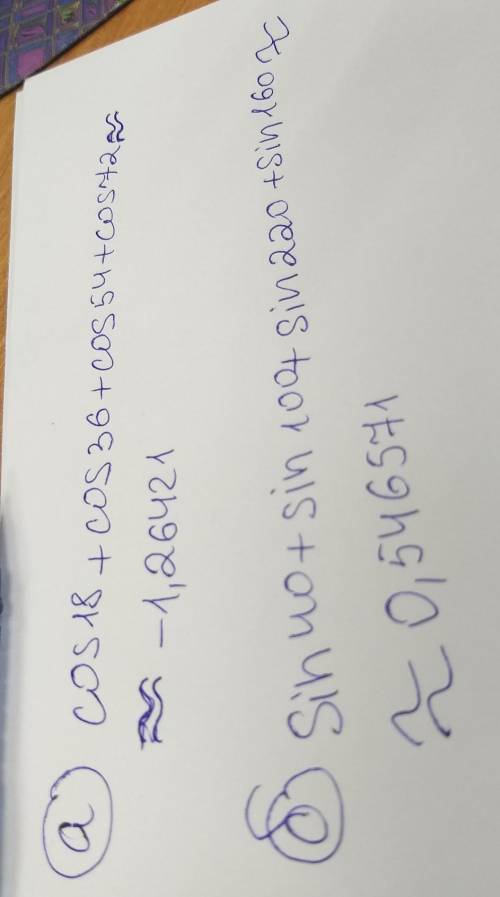 а) cos18+cos36+cos54+cos72≈
≈ -1,26421
б) sin40+sin100+sin220+sin160≈
≈ 0,546571